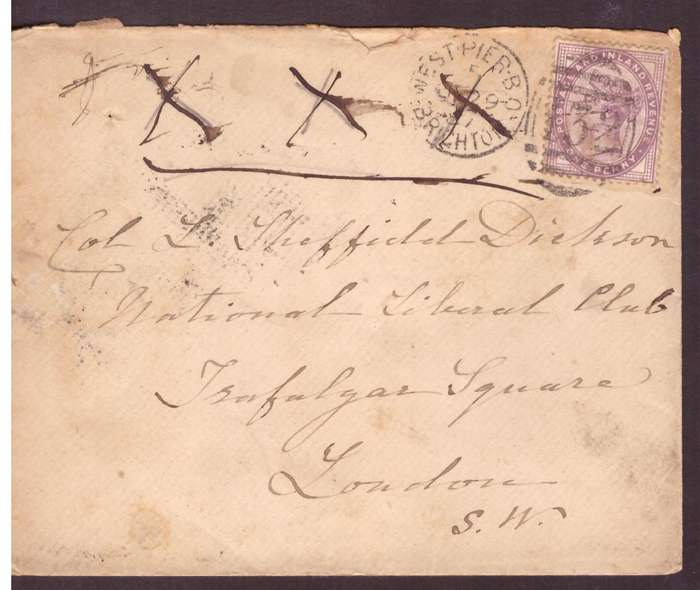 X X X
WEST·PIER·B.O.
BRIGHTON
POSTAGE AND INLAND REVENUE
ONE PENNY
Col L. Sheffield Dickson
National Liberal Club
Trafalgar Square
London
S. W.